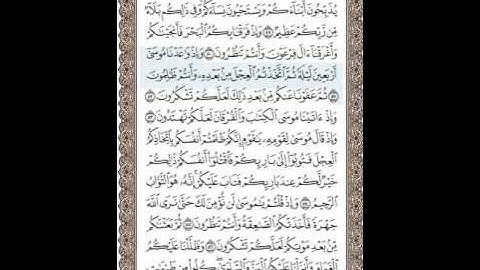 يُذَبِّحُونَ أَبْنَاءَكُمْ وَيَسْتَحْيُونَ نِسَاءَكُمْ وَفِي ذَٰلِكُم بَلَاءٌ
مِّن رَّبِّكُمْ عَظِيمٌ ٤٩ وَإِذْ فَرَقْنَا بِكُمُ الْبَحْرَ فَأَنجَيْنَاكُمْ
وَأَغْرَقْنَا آلَ فِرْعَوْنَ وَأَنتُمْ تَنظُرُونَ ٥٠ وَإِذْ وَاعَدْنَا مُوسَىٰ
أَرْبَعِينَ لَيْلَةً ثُمَّ اتَّخَذْتُمُ الْعِجْلَ مِن بَعْدِهِ وَأَنتُمْ ظَالِمُونَ
٥١ ثُمَّ عَفَوْنَا عَنكُم مِّن بَعْدِ ذَٰلِكَ لَعَلَّكُمْ تَشْكُرُونَ ٥٢
وَإِذْ آتَيْنَا مُوسَى الْكِتَابَ وَالْفُرْقَانَ لَعَلَّكُمْ تَهْتَدُونَ ٥٣
وَإِذْ قَالَ مُوسَىٰ لِقَوْمِهِ يَاقَوْمِ إِنَّكُمْ ظَلَمْتُمْ أَنفُسَكُم بِاتِّخَاذِكُمُ
الْعِجْلَ فَتُوبُوا إِلَىٰ بَارِئِكُمْ فَاقْتُلُوا أَنفُسَكُمْ ذَٰلِكُمْ
خَيْرٌ لَّكُمْ عِندَ بَارِئِكُمْ فَتَابَ عَلَيْكُمْ إِنَّهُ هُوَ التَّوَّابُ
الرَّحِيمُ ٥٤ وَإِذْ قُلْتُمْ يَامُوسَىٰ لَن نُّؤْمِنَ لَكَ حَتَّىٰ نَرَى اللَّهَ
جَهْرَةً فَأَخَذَتْكُمُ الصَّاعِقَةُ وَأَنتُمْ تَنظُرُونَ ٥٥ ثُمَّ بَعَثْنَاكُم
مِّن بَعْدِ مَوْتِكُمْ لَعَلَّكُمْ تَشْكُرُونَ ٥٦ وَظَلَّلْنَا عَلَيْكُمُ
الْغَمَامَ وَأَنزَلْنَا عَلَيْكُمُ الْمَنَّ وَالسَّلْوَىٰ كُلُوا مِن طَيِّبَاتِ